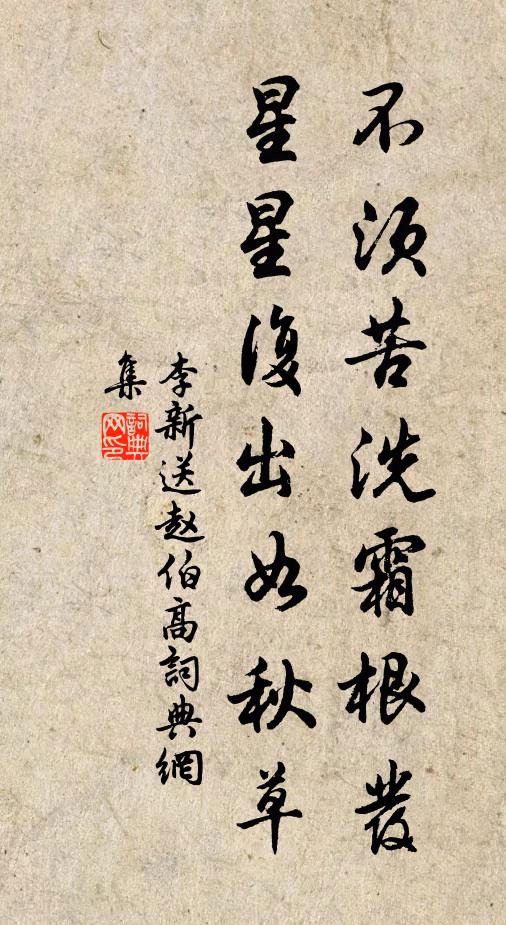 不须苦洗霜根發
星星復出如秋草
李新送赵伯高詞典網
集
詞典網印